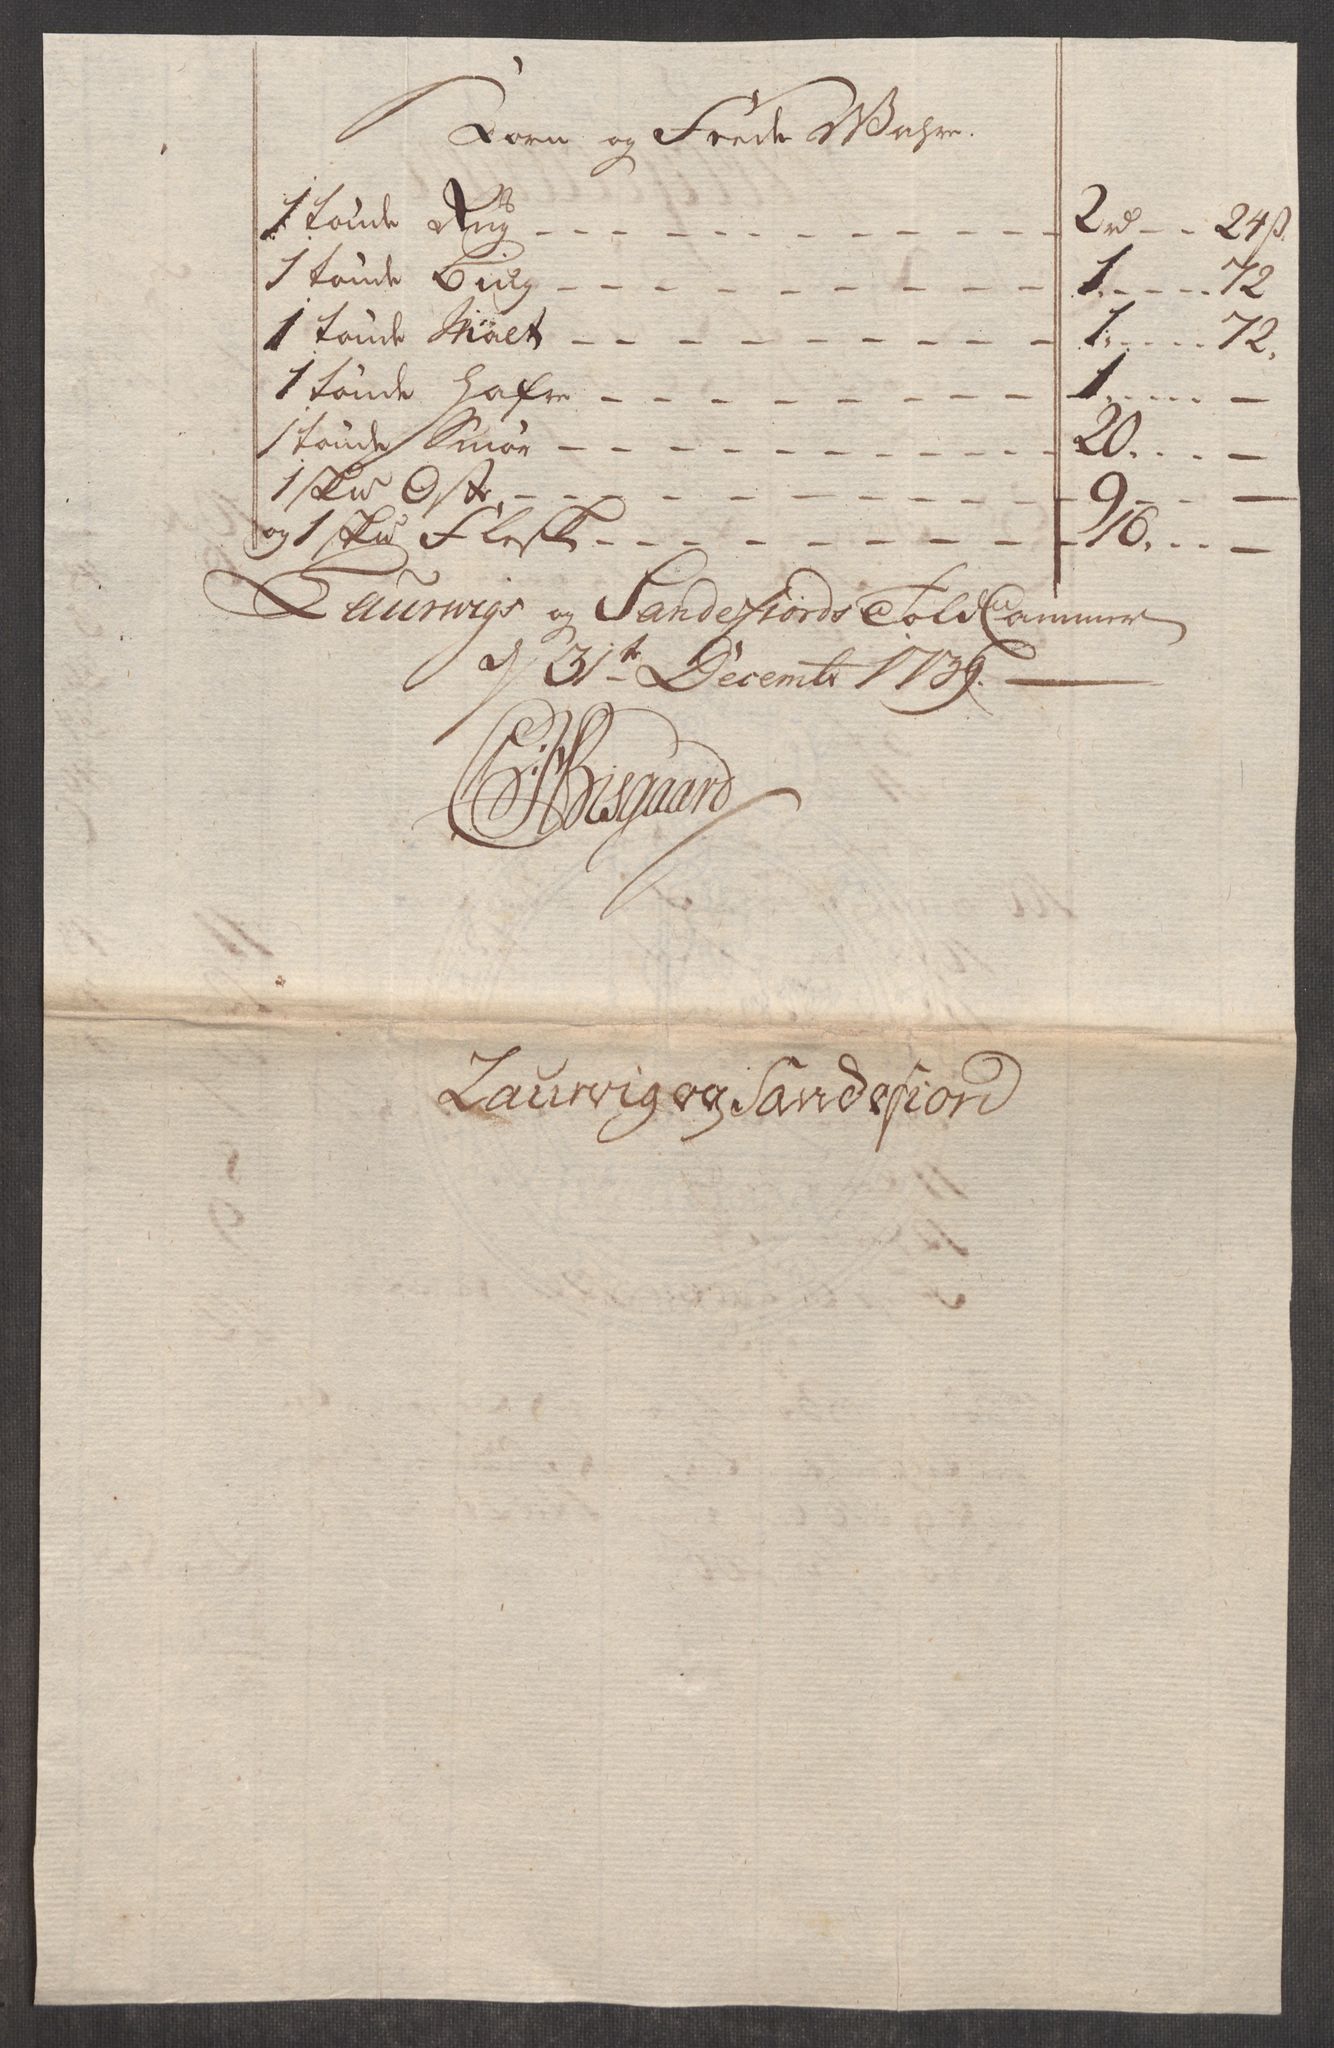 Korn og Feede Wahre.
1 tønde Rug 2 rd 24 ß.
1 tønde Biug 1. 72
1 tønde Malt 1. 72.
1 tønde Hafre 1. —
1 tønde Smør 20. —
1 Skw Oste 9 —
og 1 Skw Flesk 16. —
Laurwigs og Sandefiords Told Cammer
d 31te Decembr 1739.
Bisgaard
Laurvig og Sandefiord